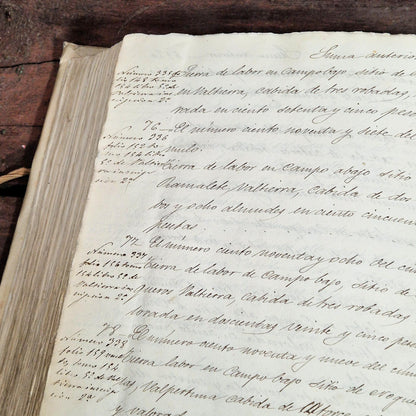 Suma anterior
Número 335
folio 148 tomo
154 libro 5º de
Tierra de labor en Campo bajo, sitio de
en Valtierra, cabida de tres robadas,
rada en ciento setenta y cinco pese
76 — El número ciento noventa y siete del
Número 336
folio 152 to
mo 154 libro
5º de Valtierra
ción 2ª
Tierra de labor en Campo abajo sitio
Ramalete, Valtierra, cabida de dos
ba y ocho almudes, en ciento cincuen
pesetas
77 El número ciento noventa y ocho del
Número 337
folio 156 tomo
154 libro 5º de
Valtierra ins
cripción 2ª
Tierra de labor de Campo bajo, sitio de
gueros Valtierra, cabida de tres robadas
lorada en doscientas veinte y cinco pese
78 El número ciento noventa y nueve del
Número 338
folio 159
tomo 154
libro 5º de
2ª
Tierra labor en Campo bajo sitio de
Valtierra cabida de
y valora